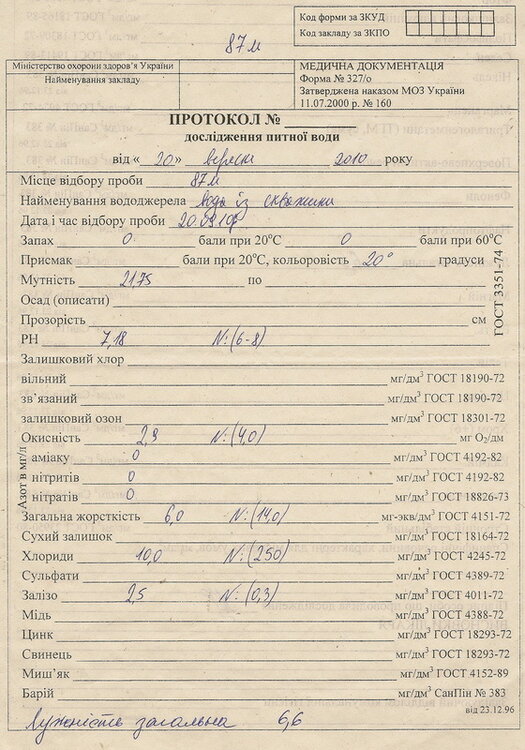 Код форми за ЗКУД
Код закладу за ЗКПО
87м
Міністерство охорони здоров'я України
Найменування закладу
МЕДИЧНА ДОКУМЕНТАЦІЯ
Форма № 327/о
Затверджена наказом МОЗ України
11.07.2000 р. № 160
ПРОТОКОЛ №
дослідження питної води
від « 20 » вересня 2010 року
Місце відбору проби 87м
Найменування вододжерела вода із скважини
Дата і час відбору проби 20.09.10р
Запах 0 бали при 20°С 0 бали при 60°С
Присмак бали при 20°С, кольоровість 20° градуси
Мутність 21,75 по
Осад (описати)
Прозорість см
ГОСТ 3351-74
РН 7,18 N:(6-8)
Залишковий хлор
вільний мг/дм³ ГОСТ 18190-72
зв'язаний мг/дм³ ГОСТ 18190-72
залишковий озон мг/дм³ ГОСТ 18301-72
Окисність 2,9 N:(4,0) мг О₂/дм
Азот в мг/л
аміаку 0 мг/дм³ ГОСТ 4192-82
нітритів 0 мг/дм³ ГОСТ 4192-82
нітратів 0 мг/дм³ ГОСТ 18826-73
Загальна жорсткість 6,0 N:(14,0) мг-экв/дм³ ГОСТ 4151-72
Сухий залишок мг/дм³ ГОСТ 18164-72
Хлориди 10,0 N:(250) мг/дм³ ГОСТ 4245-72
Сульфати мг/дм³ ГОСТ 4389-72
Залізо 2,5 N:(0,3) мг/дм³ ГОСТ 4011-72
Мідь мг/дм³ ГОСТ 4388-72
Цинк мг/дм³ ГОСТ 18293-72
Свинець мг/дм³ ГОСТ 18293-72
Миш'як мг/дм³ ГОСТ 4152-89
Барій мг/дм³ СанПін № 383
від 23.12.96
Лужність загальна 6,6